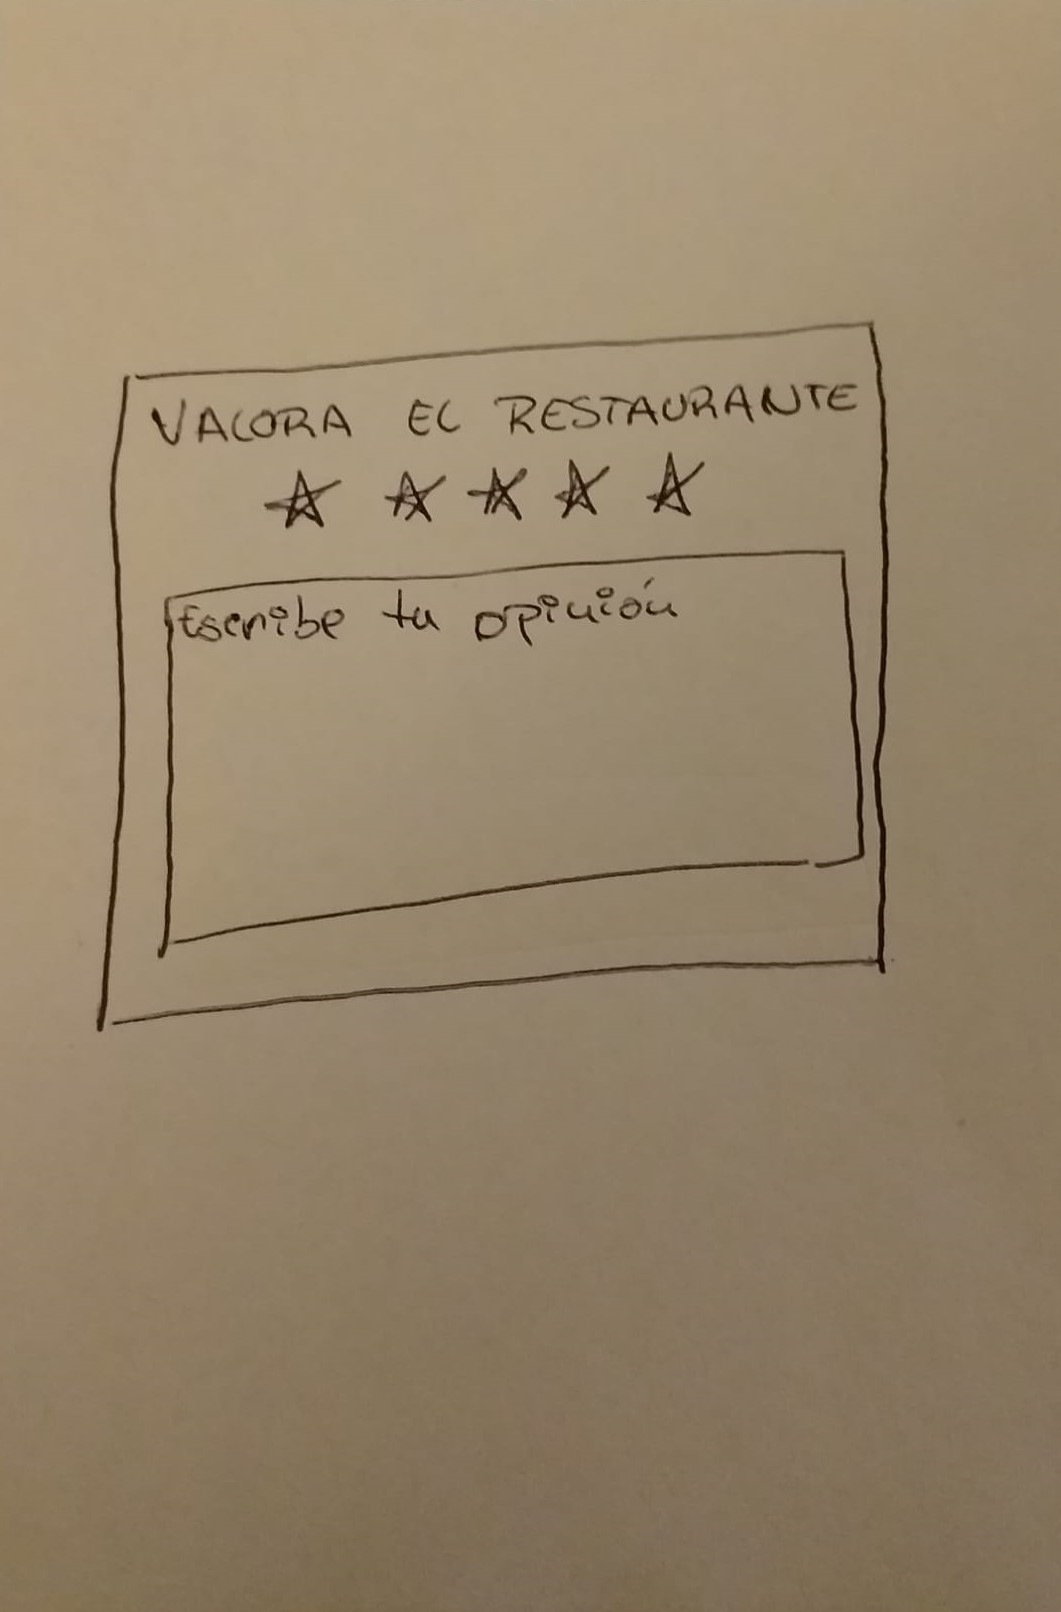 VALORA EL RESTAURANTE
Escribe tu opinión